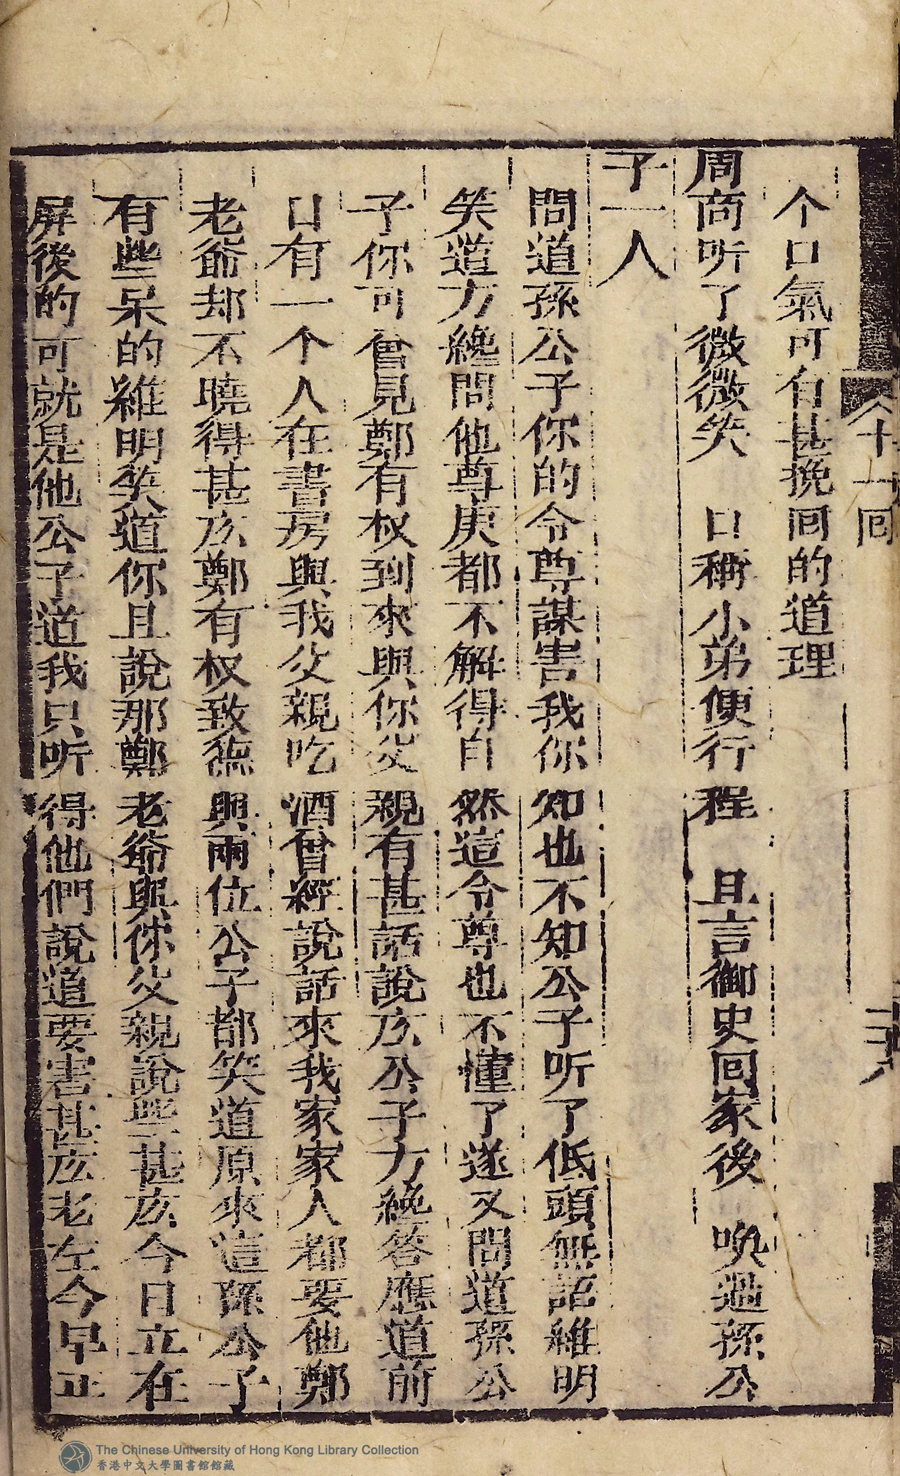 八十一回
二十八
个口氣可有甚挽囬的道理
周商听了微微笑　口稱小弟便行程　且言御史囬家後　喚過孫公
子一人
問道孫公子你的令尊謀害我你知也不知公子听了低頭無語維明
笑道方纔問他尊庚都不解得自然這令尊也不懂了遂又問道孫公
子你可曾見鄭有权到來與你父親有甚話說広公子方纔答應道前
日有一个人在書房與我父親吃酒曾經說話來我家家人都要他鄭
老爺却不曉得甚広鄭有权致德與兩位公子都笑道原來這孫公子
有些呆的維明笑道你且說那鄭老爺與你父親說些甚広今日立在
屏後的可就是他公子道我只听得他們說道要害甚広老左今早正
The Chinese University of Hong Kong Library Collection
香港中文大學圖書館館藏